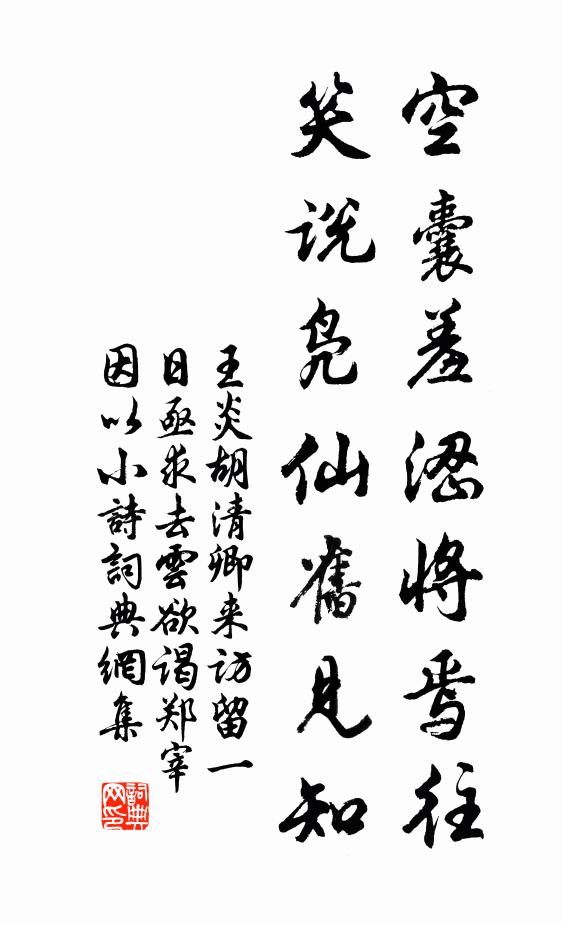 空囊羞涩將焉往
笑说凫仙舊见知
王炎胡清卿来访留一
日亟求去雲欲謁郑宰
因以小詩詞典網集
詞典
网印